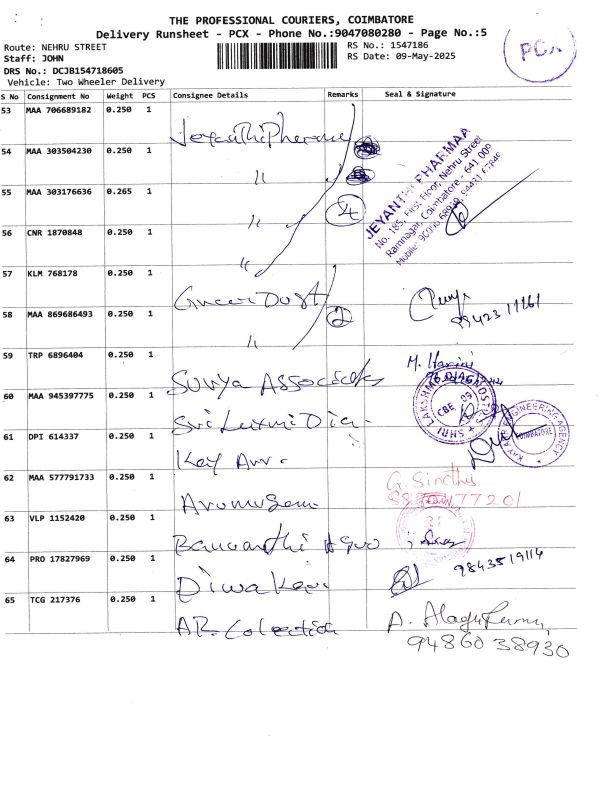 THE PROFESSIONAL COURIERS, COIMBATORE
Delivery Runsheet - PCX - Phone No.:9047080280 - Page No.:5
PCX
Route: NEHRU STREET
RS No.: 1547186
Staff: JOHN
RS Date: 09-May-2025
DRS No.: DCJB154718605
Vehicle: Two Wheeler Delivery
S No Consignment No Weight PCS Consignee Details Remarks Seal & Signature
53 MAA 706689182 0.250 1 Jeyanthi Pharma
54 MAA 303504230 0.250 1 "
55 MAA 303176636 0.265 1 " 4
56 CNR 1870848 0.250 1 "
JEYANTHI PHARMAA
No. 185, First Floor, Nehru Street
Ramnagar, Coimbatore - 641 009
Mobile:
57 KLM 768178 0.250 1 Dust
58 MAA 869686493 0.250 1 " 2
59 TRP 6896404 0.250 1 Surya Associates M. Harini
60 MAA 945397775 0.250 1 Sri Luxmi Dia.
SHRI LAKSHMI DIAGNOSTICS
CBE 09
61 DPI 614337 0.250 1 Kay
ENGINEERING AGENCY
COIMBATORE
62 MAA 577791733 0.250 1 G. Sindhu
77201
63 VLP 1152420 0.250 1
64 PRO 17827969 0.250 1 Diwakar 9843519114
65 TCG 217376 0.250 1 AR. Collection A.
94860 38930